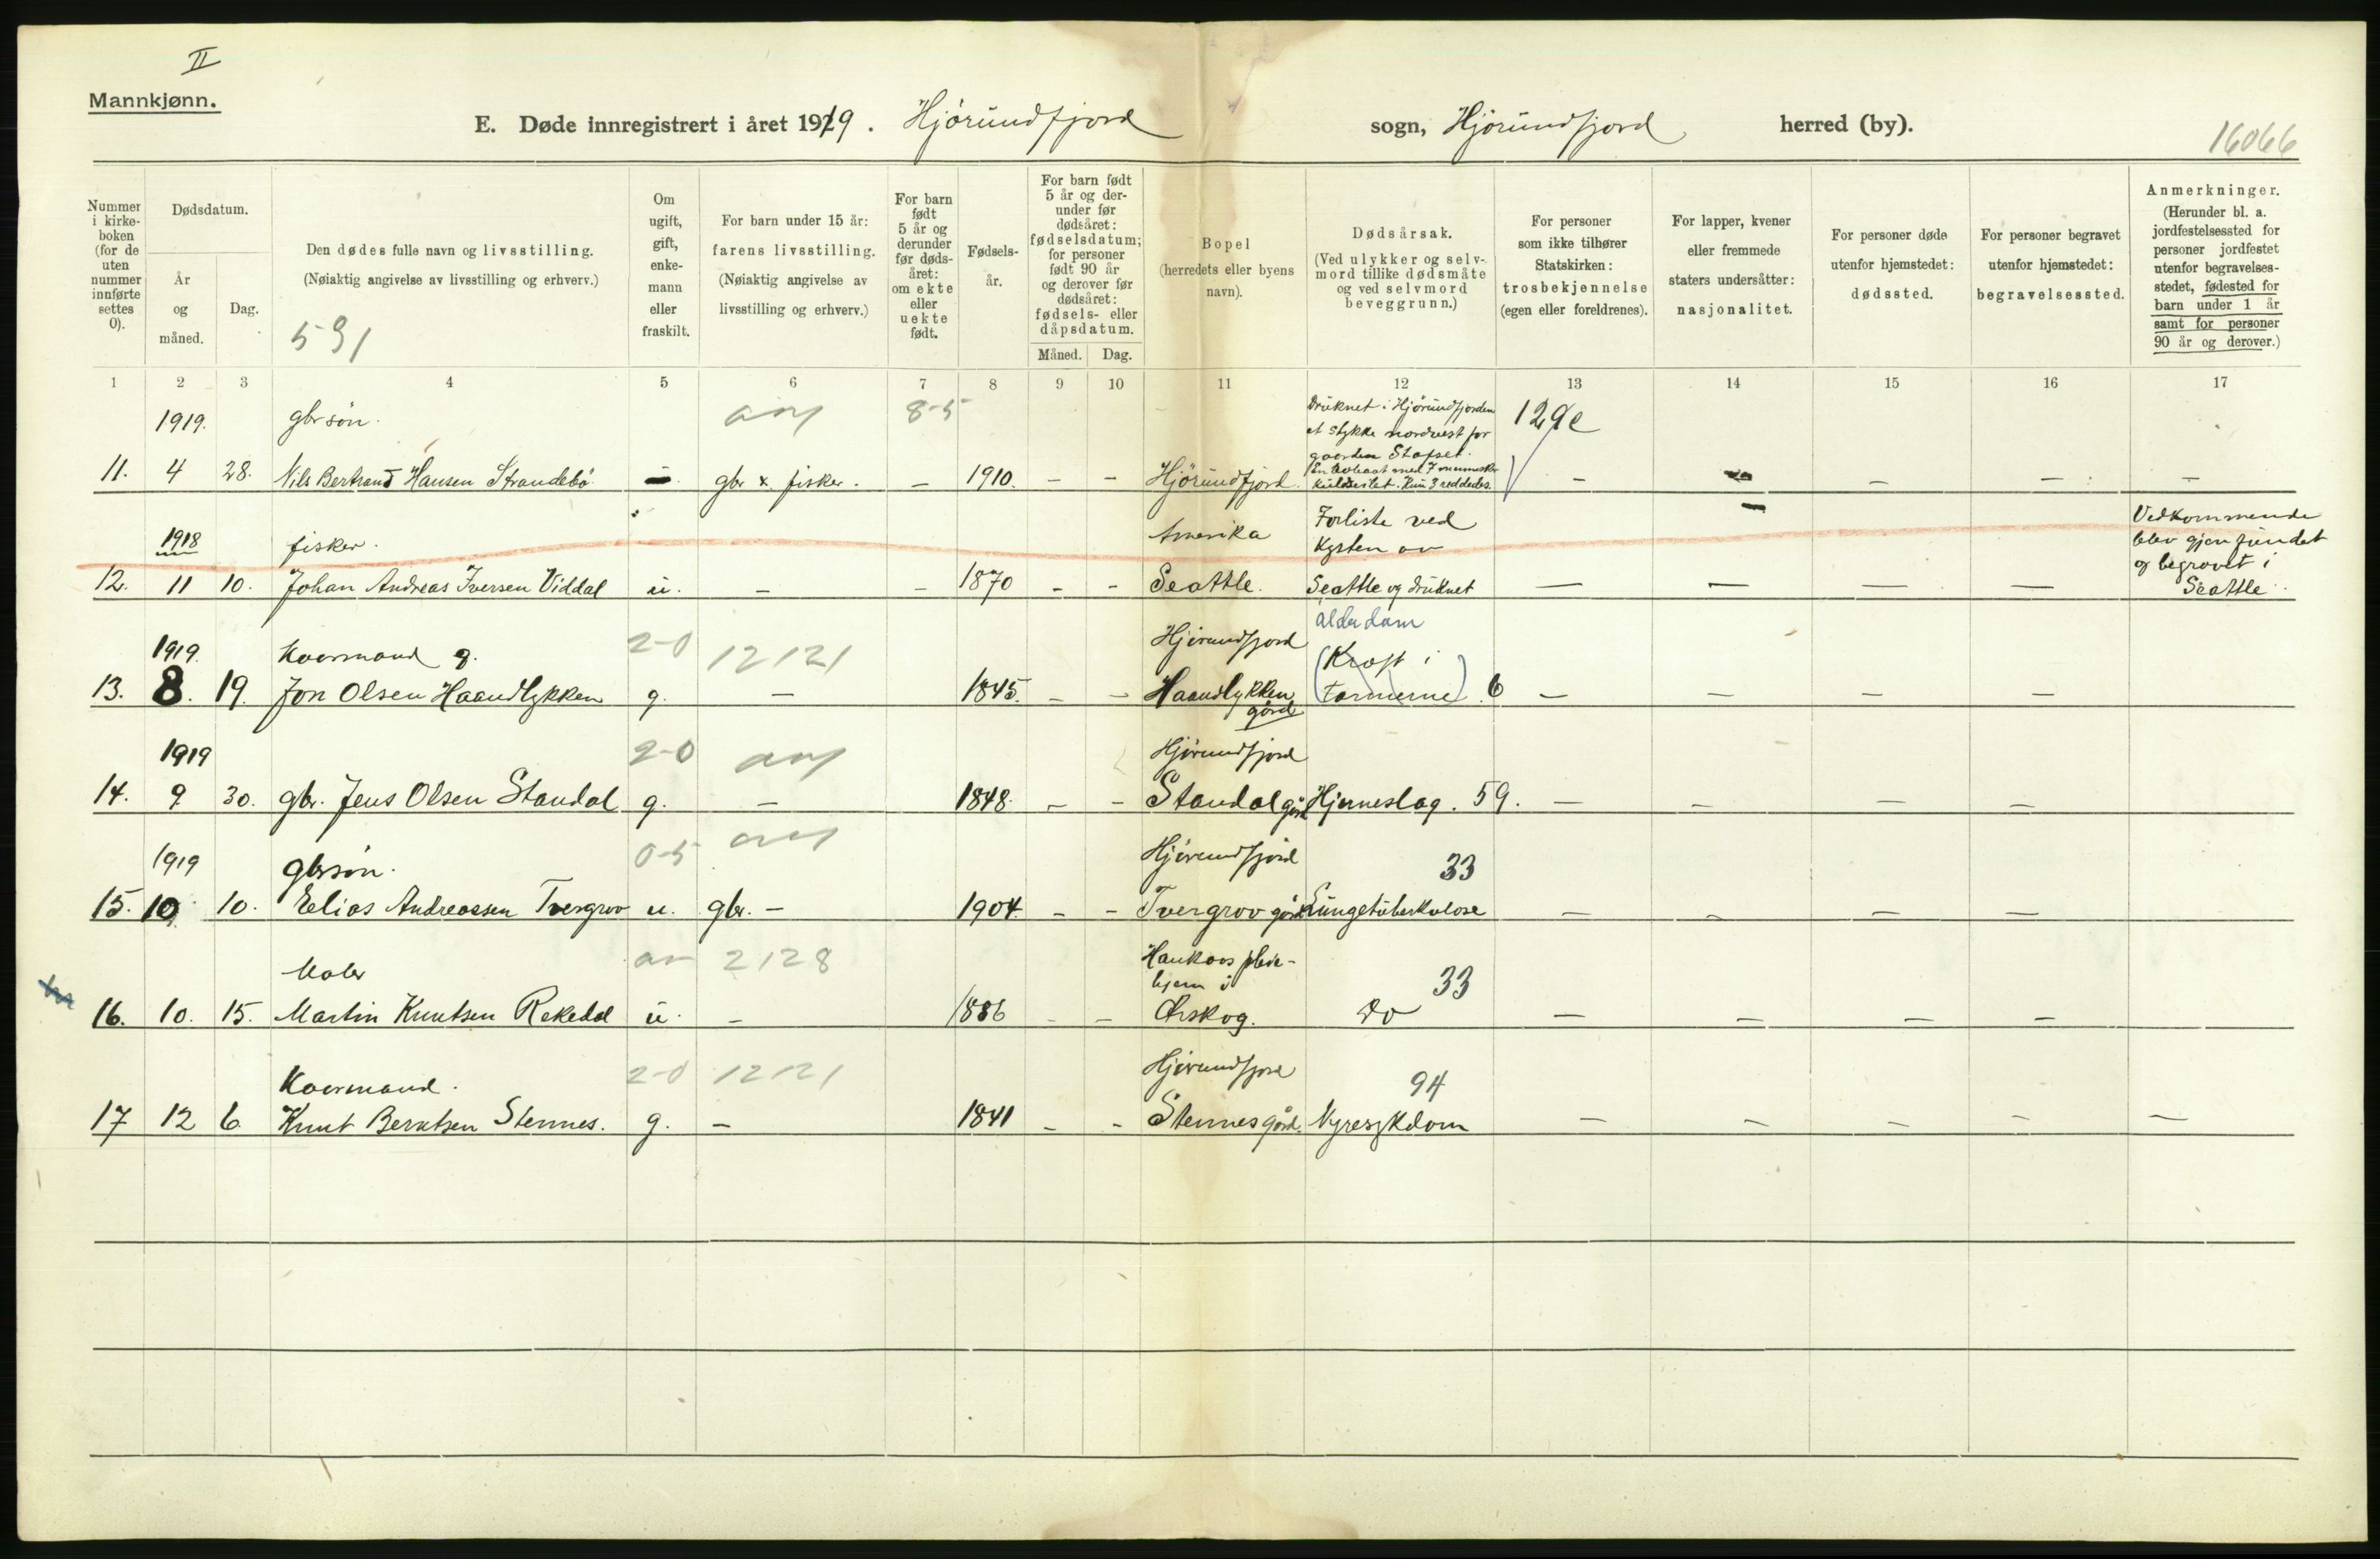 II
Mannkjønn.
E. Døde innregistrert i året 1919. Hjørundfjord sogn, Hjørundfjord herred (by).
16066
Nummer i kirke-boken (for de uten nummer innførte settes 0).
Dødsdatum.
År og måned.
Dag.
Den dødes fulle navn og livsstilling.
(Nøiaktig angivelse av livsstilling og erhverv.)
591
Om ugift, gift, enke-mann eller fraskilt.
For barn under 15 år: farens livsstilling.
(Nøiaktig angivelse av livsstilling og erhverv.)
For barn født 5 år og derunder før døds-året: om ekte eller uekte født.
Fødsels-år.
For barn født 5 år og der-under før dødsåret: fødselsdatum; for personer født 90 år og derover før dødsåret: fødsels- eller dåpsdatum.
Måned. Dag.
Bopel
(herredets eller byens navn).
Dødsårsak.
(Ved ulykker og selv-mord tillike dødsmåte og ved selvmord beveggrunn.)
For personer som ikke tilhører Statskirken: trosbekjennelse (egen eller foreldrenes).
For lapper, kvener eller fremmede staters undersåtter: nasjonalitet.
For personer døde utenfor hjemstedet: dødssted.
For personer begravet utenfor hjemstedet: begravelsessted.
Anmerkninger.
(Herunder bl. a. jordfestelsessted for personer jordfestet utenfor begravelses-stedet, fødested for barn under 1 år samt for personer 90 år og derover.)
1 2 3 4 5 6 7 8 9 10 11 12 13 14 15 16 17
1919. gbr søn. 8-5 Druknet i Hjørundfjorden
et stykke nordvest for
gaarden Stafset.
11. 4 28. Nils Bertrand Hansen Strandebø - gbr & fisker. - 1910. - - Hjørundfjord. En baat med 7 mennesker
kuldseilet. Kun 3 reddedes. - - - - -
1918 fisker. Amerika Forliste ved
Kysten av Vedkommende
blev gjenfundet
og begravet i
12. 11 10. Johan Andreas Iversen Viddal u. - - 1870 - - Seattle. Seattle og druknet - - - - Seattle.
1919. Kaarmand g. 2-0 12121 Hjørundfjord alderdom
13. 8. 19. Jon Olsen Haandlykken g. - 1845. - - Haandlykken gård (Kræft i tarmerne) 6 - - - -
1919 2-0 Hjørundfjord
14. 9 30. gbr. Jens Olsen Standal g. - 1848. - - Standal gård Hjerneslag. 59. - - - -
1919 gbrsøn. 0-5 Hjørundfjord 33
15. 10 10. Elias Andreassen Tvergrov u. gbr. - 1904. - - Tvergrov gård Lungetuberkulose - - - -
Maler 2128 Haukaas pleie-
hjem i 33
16. 10. 15. Martin Knutsen Rekedal u. - 1886 - - Ørskog. Do - - - -
Kaarmand. 2-0 12121 Hjørundfjord 94
17 12 6. Knut Berntsen Stennes. g. - 1841 - - Stennes gård. Nyresykdom - - - - -